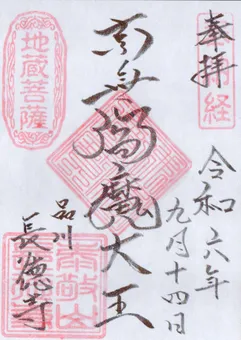 奉拝
納経
令和六年
九月十四日
南無閻魔大王
地蔵菩薩
品川
長徳寺